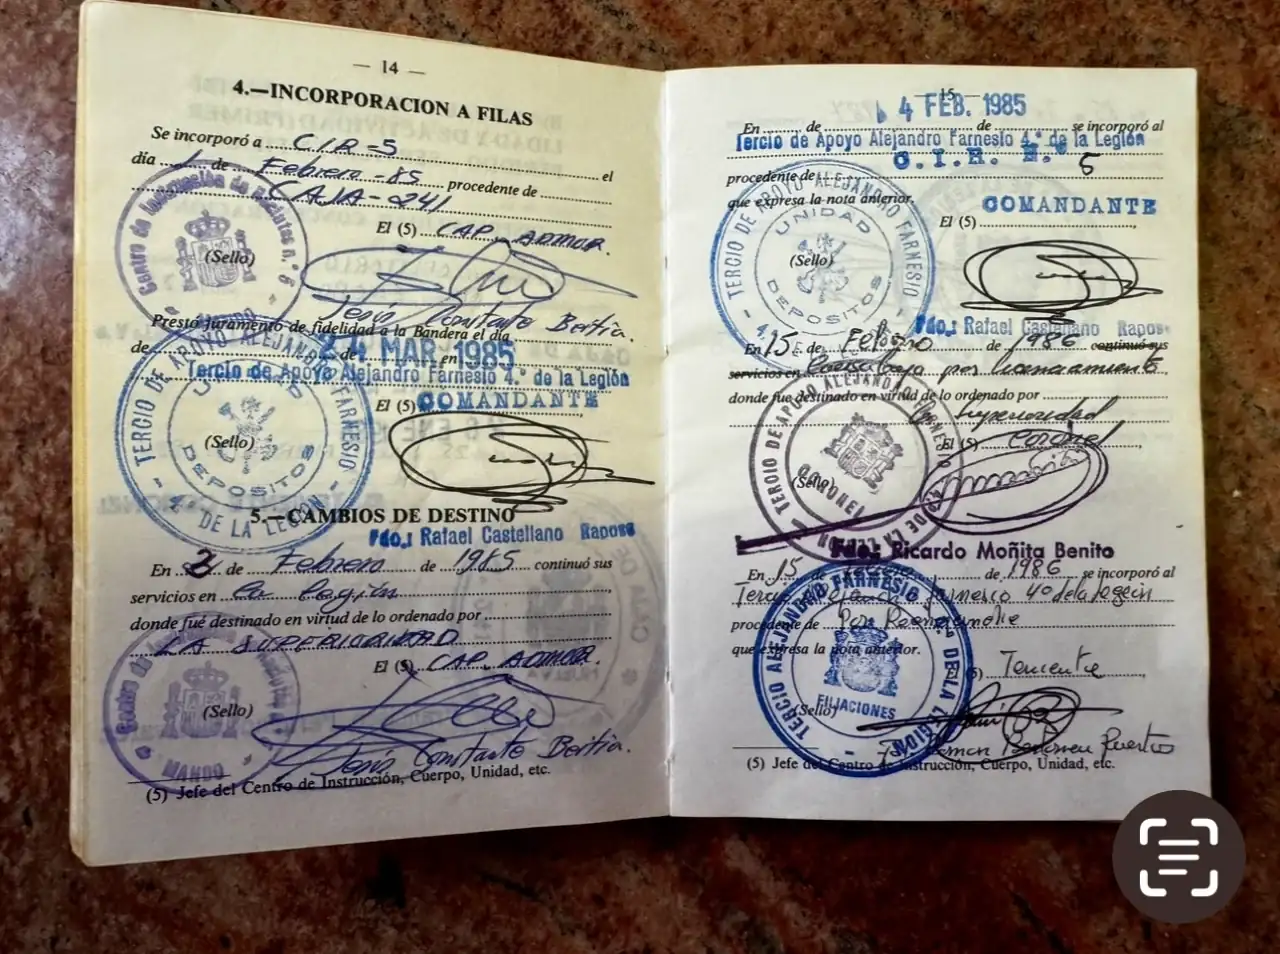 — 14 —
4.—INCORPORACION A FILAS
Se incorporó a CIR-5 el
día 1 de Febrero-85 procedente de
CAJA-241
El (5) CAP. ADMOR.
Centro de Instrucción de Reclutas n.º 5
MANDO
(Sello)
Jesús Constante Beitia.
Prestó juramento de fidelidad a la Bandera el día
de 24 MAR. 1985 de en
Tercio de Apoyo Alejandro Farnesio 4.º de la Legión
El (5) COMANDANTE
TERCIO DE APOYO ALEJANDRO FARNESIO - 4.º DE LA LEGION -
UNIDAD DEPOSITOS
(Sello)
5.—CAMBIOS DE DESTINO
Fdo.: Rafael Castellano Raposo
En 3 de Febrero de 1985 continuó sus
servicios en La Legión
donde fué destinado en virtud de lo ordenado por
LA SUPERIORIDAD
El (5) CAP. ADMOR.
(Sello)
MANDO
Jesús Constante Beitia.
(5) Jefe del Centro de Instrucción, Cuerpo, Unidad, etc.
— 15 —
4 FEB. 1985
En de de se incorporó al
Tercio de Apoyo Alejandro Farnesio 4.º de la Legión
procedente de C. I. R. N.º 5
que expresa la nota anterior.
El (5) COMANDANTE
TERCIO DE APOYO ALEJANDRO FARNESIO
UNIDAD DEPOSITOS
(Sello)
Fdo.: Rafael Castellano Rapos
En 15 de Febrero de 1986 continuó sus
servicios en Causa baja por licenciamiento
donde fue destinado en virtud de lo ordenado por
Superioridad
El (5) Coronel
TERCIO DE APOYO ALEJANDRO FARNESIO 4.º DE LA LEGION
CORONEL
(Sello)
Fdo.: Ricardo Moñita Benito
En 15 de Febrero de 1986 se incorporó al
Tercio Alejandro Farnesio 4º de la Legión
procedente de Por Reenganche
que expresa la nota anterior.
(5) Teniente
TERCIO ALEJANDRO FARNESIO 4.º DE LA LEGION
FILIACIONES
(Sello)
(5) Jefe del Centro de Instrucción, Cuerpo, Unidad, etc.